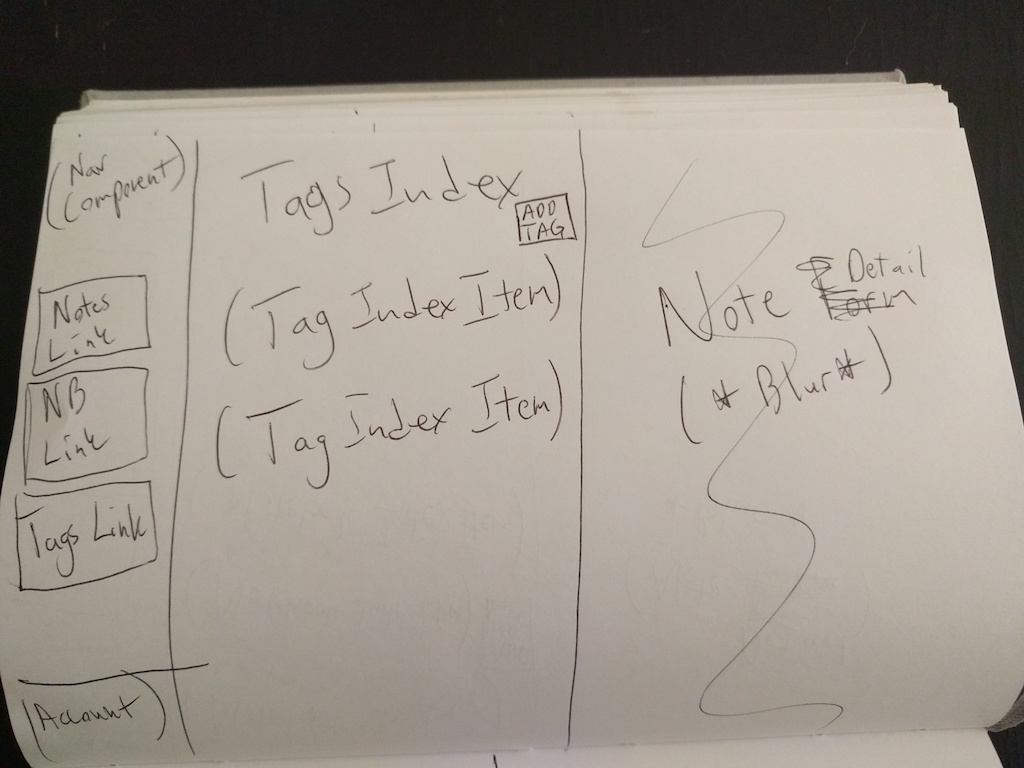 (Nav
Component)
Notes
Link
NB
Link
Tags Link
(Account)
Tags Index
ADD
TAG
(Tag Index Item)
(Tag Index Item)
Note Detail
Form
(* Blur *)